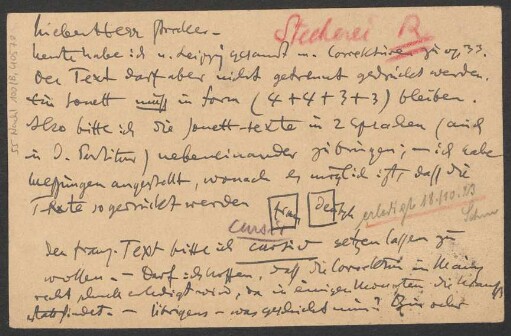 Lieber Herr Strecker –
Stecherei R
heute habe ich n. Leipzig gesandt m. Correkturen zu op. 33.
Der Text darf aber nicht getrennt gedruckt werden.
Ein Sonett muss in form (4+4+3+3) bleiben.
Also bitte ich die Sonett-texte in 2 Sprachen (auch
in d. Partitur) nebeneinander zu bringen; – ich habe
Messungen angestellt, wonach es möglich ist, dass die
Texte so gedruckt werden franz. deutsch
erledigt 18.10.23
cursiv
Den franz. Text bitte ich cursiv setzen lassen zu
wollen. – Darf ich hoffen, dass die Correktur in Mainz
recht schnell erledigt wird, da in einigen Monaten die
stattfindet – Übrigens – was geschieht nun? oder
55 Nachl 100/B,